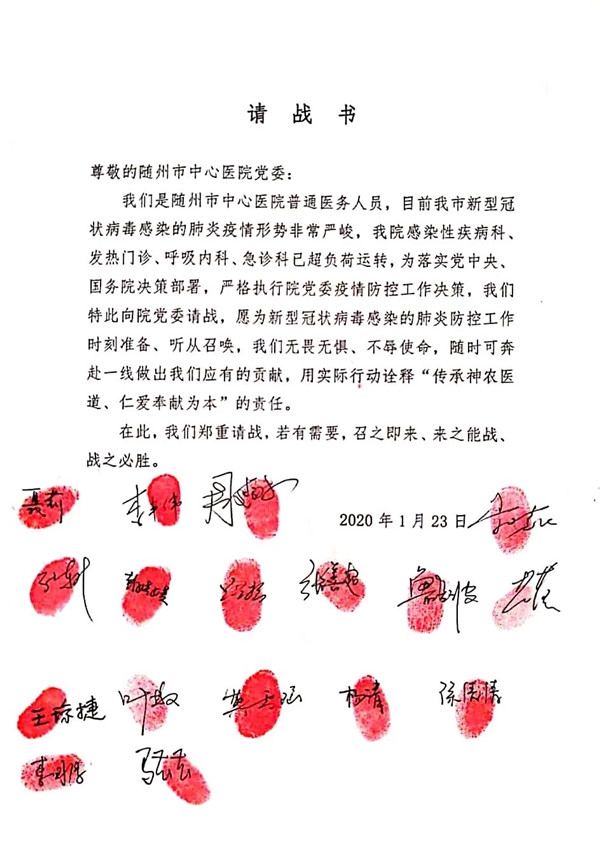 请战书
尊敬的随州市中心医院党委：
我们是随州市中心医院普通医务人员，目前我市新型冠
状病毒感染的肺炎疫情形势非常严峻，我院感染性疾病科、
发热门诊、呼吸内科、急诊科已超负荷运转，为落实党中央、
国务院决策部署，严格执行院党委疫情防控工作决策，我们
特此向院党委请战，愿为新型冠状病毒感染的肺炎防控工作
时刻准备、听从召唤，我们无畏无惧、不辱使命，随时可奔
赴一线做出我们应有的贡献，用实际行动诠释“传承神农医
道、仁爱奉献为本”的责任。
在此，我们郑重请战，若有需要，召之即来、来之能战、
战之必胜。
聂莉
2020年1月23日
王琼捷 叶敏 杨清